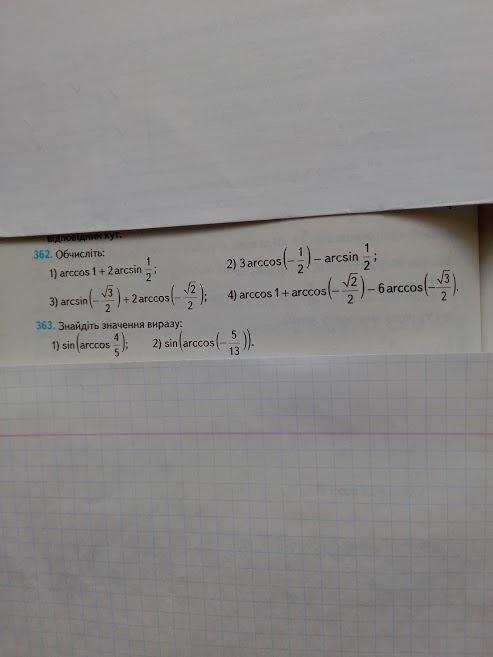 відповідний кут.
362. Обчисліть:
1) arccos 1 + 2 arcsin 1/2; 2) 3 arccos(−1/2) − arcsin 1/2;
3) arcsin(−√3/2) + 2 arccos(−√2/2); 4) arccos 1 + arccos(−√2/2) − 6 arccos(−√3/2).
363. Знайдіть значення виразу:
1) sin(arccos 4/5); 2) sin(arccos(−5/13)).